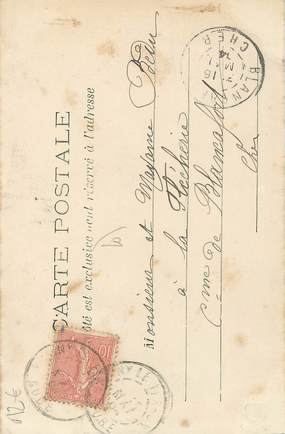 CARTE POSTALE
té est exclusivement réservé à l'adresse
Monsieur et Madame
à la Rôcherie
Cne de Blancafort
Cher
10
BLAN
CHER
12€